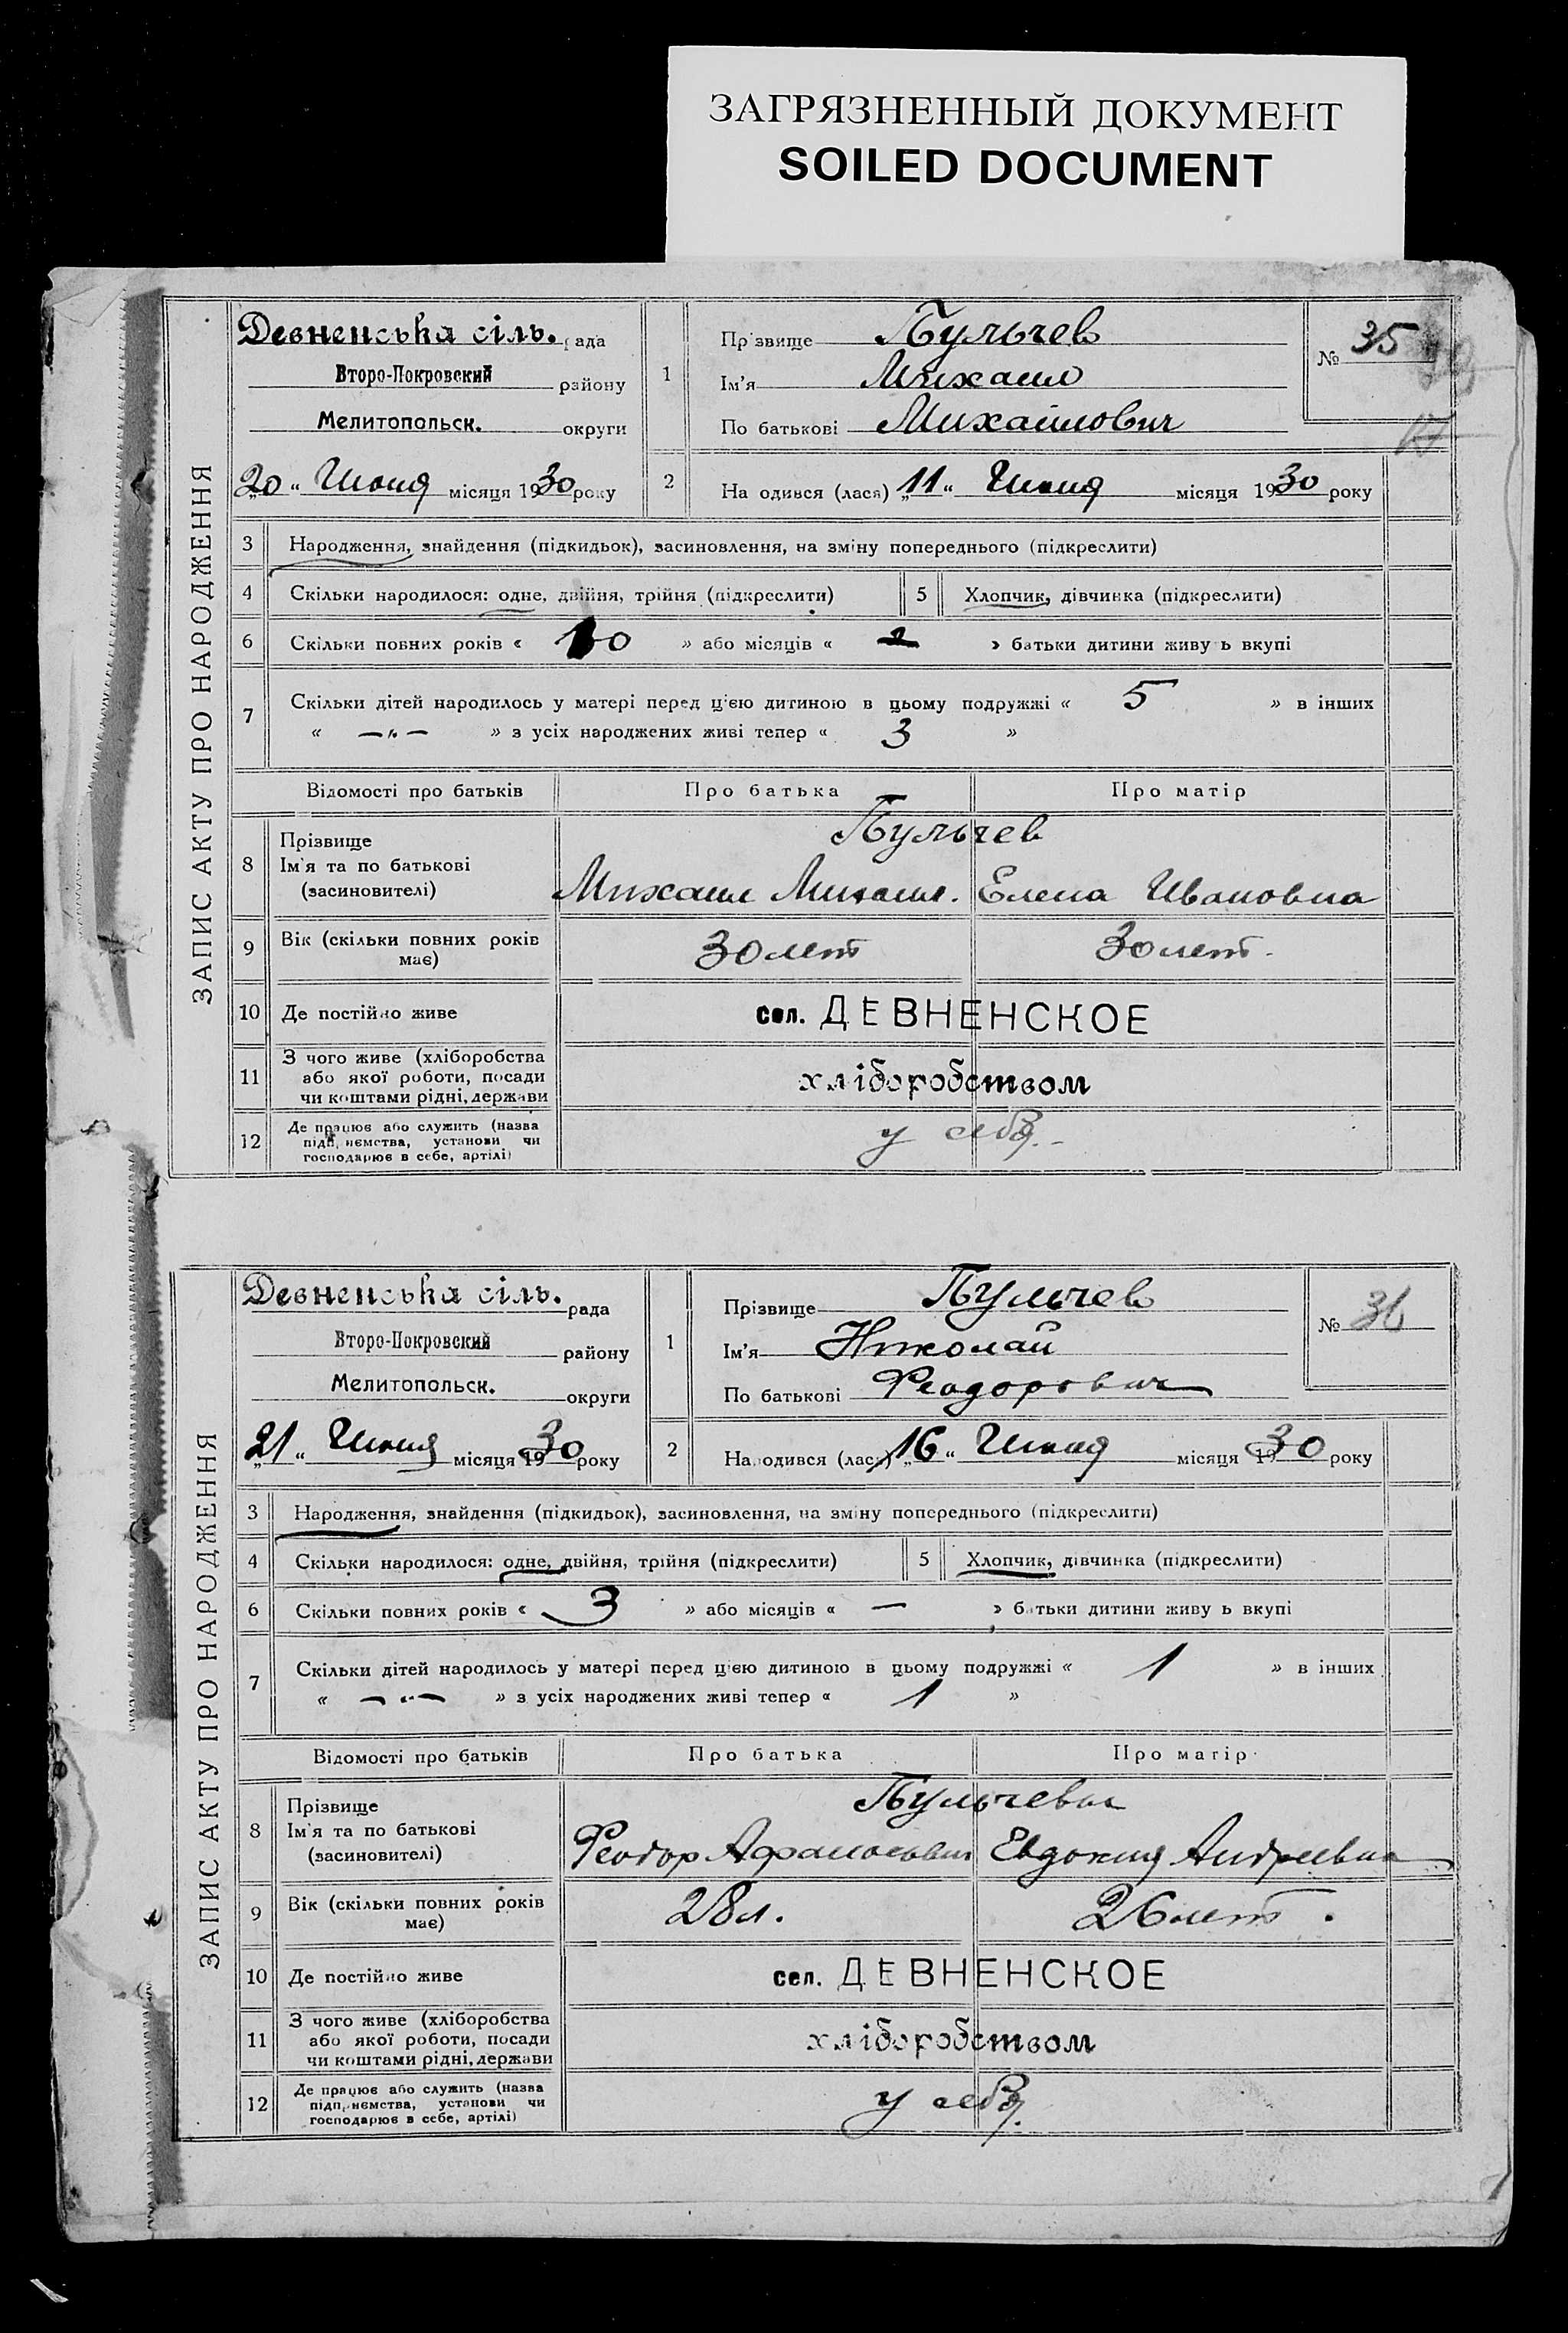 ЗАГРЯЗНЕННЫЙ ДОКУМЕНТ
SOILED DOCUMENT
ЗАПИС АКТУ ПРО НАРОДЖЕННЯ
Девненська сіль. рада
Второ-Покровский району
Мелитопольск. округи
„20“ Июня місяця 1930 року
1 Прізвище Пульчев
Ім'я Михаил
По батькові Михайлович
№ 35
2 На одився (лася) „11“ Июня місяця 1930 року
3 Народження, знайдення (підкидьок), засиновлення, на зміну попереднього (підкреслити)
4 Скільки народилося: одне, двійня, трійня (підкреслити) 5 Хлопчик, дівчинка (підкреслити)
6 Скільки повних років « 10 » або місяців « » батьки дитини живу ь вкупі
7 Скільки дітей народилось у матері перед цією дитиною в цьому подружжі « 5 » в інших
« —„— » з усіх народжених живі тепер « 3 »
Відомості про батьків Про батька Про матір
8 Прізвище Ім'я та по батькові (засновителі) Пульчев
Михаил Михаил. Елена Ивановна
9 Вік (скільки повних років має) 30 лет 30 лет.
10 Де постійно живе сел. ДЕВНЕНСКОЕ
11 З чого живе (хліборобства або якої роботи, посади чи коштами рідні, держави хліборобством
12 Де працює або служить (назва підп, иємства, установи чи господарює в себе, артілі) у себя.
ЗАПИС АКТУ ПРО НАРОДЖЕННЯ
Девненська сіль. рада
Второ-Покровский району
Мелитопольск. округи
„21“ Июня місяця 1930 року
1 Прізвище Пульчев
Ім'я Николай
По батькові Феодорович
№ 36
2 Народився (лася) „16“ Июня місяця 1930 року
3 Народження, знайдення (підкидьок), засиновлення, на зміну попереднього (підкреслити)
4 Скільки народилося: одне, двійня, трійня (підкреслити) 5 Хлопчик, дівчинка (підкреслити)
6 Скільки повних років « 3 » або місяців « — » батьки дитини живу ь вкупі
7 Скільки дітей народилось у матері перед цією дитиною в цьому подружжі « 1 » в інших
« —„— » з усіх народжених живі тепер « 1 »
Відомості про батьків Про батька Про матір
8 Прізвище Ім'я та по батькові (засиновителі) Пульчевы
Феодор Афанасьевич Евдокия Андреевна
9 Вік (скільки повних років має) 28 л. 26 лет.
10 Де постійно живе сел. ДЕВНЕНСКОЕ
11 З чого живе (хліборобства або якої роботи, посади чи коштами рідні, держави хліборобством
12 Де працює або служить (назва підп, иємства, установи чи господарює в себе, артілі) у себя.